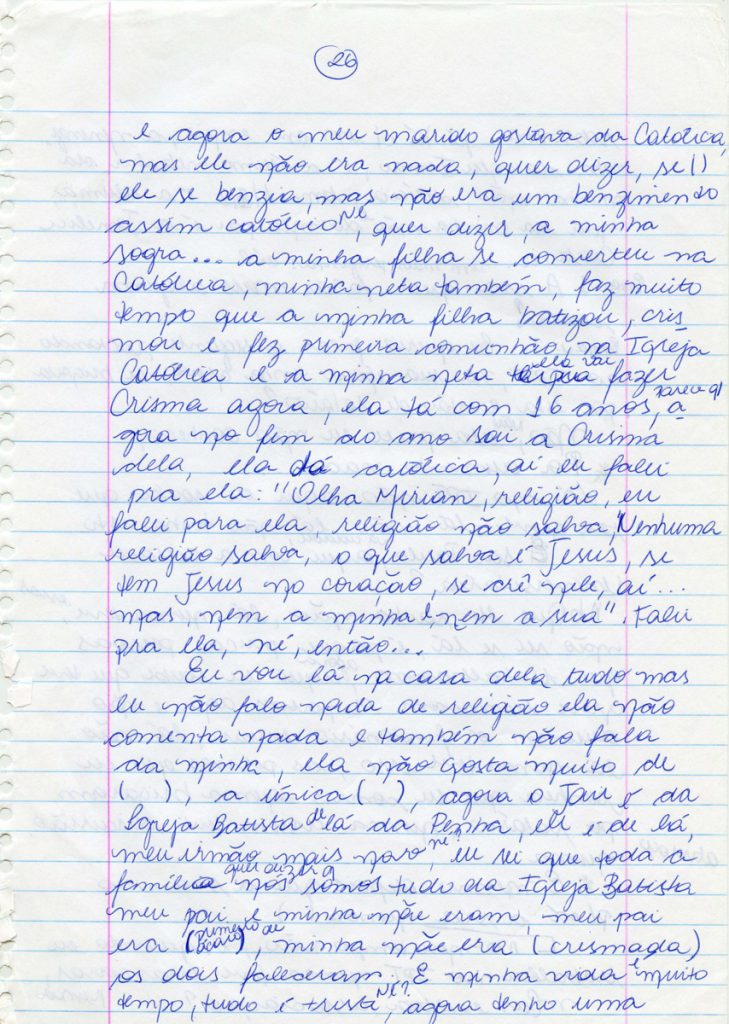 26
e agora o meu marido gostava da Católica,
mas ele não era nada, quer dizer, se ( )
ele se benzia, mas não era um benzimento
assim católico né, quer dizer, a minha
sogra... a minha filha se converteu na
Católica, minha neta também, faz muito
tempo que a minha filha batizou, cris
mou e fez primeira comunhão, na Igreja
Católica e a minha neta ela vai fazer
Crisma agora, ela tá com 16 anos, parece q a
gora no fim do ano sai a Crisma
dela, ela tá católica, aí eu falei
pra ela: "Olha Mirian, religião, eu
falei para ela religião não salva, "Nenhuma
religião salva, o que salva é Jesus, se
tem Jesus no coração, se crê nele, aí...
mas nem a minha e nem a sua". Falei
pra ela, né, então...
Eu vou lá na casa dela tudo mas
eu não falo nada de religião ela não
comenta nada e também não fala
da minha, ela não gosta muito de
( ), a única ( ), agora o Jair é da
Igreja Batista de lá da Penha, ele é de lá,
meu irmão mais novo, né, eu sei que toda a
família quer dizer q nós somos tudo da Igreja Batista
meu pai e minha mãe eram, meu pai
era (primeiro de), minha mãe era (crismada)
os dois faleceram. E minha vida é muito
tempo, tudo é triste né?, agora tenho uma